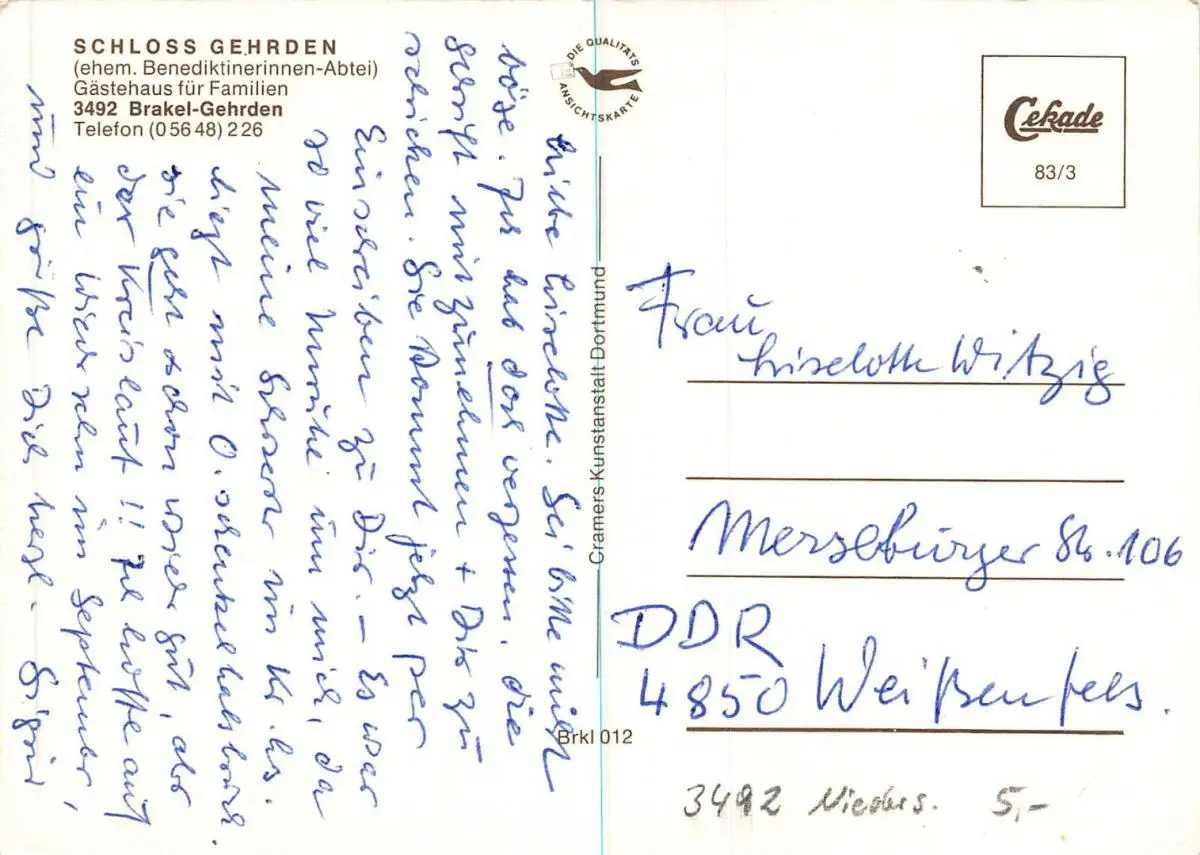 SCHLOSS GEHRDEN
(ehem. Benediktinerinnen-Abtei)
Gästehaus für Familien
3492 Brakel-Gehrden
Telefon (0 56 48) 2 26
DIE QUALITÄTS
ANSICHTSKARTE
Cekade
83/3
Liebe Liselotte. Sei bitte nicht
böse. Ich hab doch vergessen, die
Schrift mitzunehmen + Dir zu
schicken. Sie kommt jetzt per
Einschreiben zu Dir. – Es war
so viel Unruhe um mich, da
meine Schwester im Kr. hs.
liegt mit O. schenkelhalsbruch.
sie geht schon wieder gut, aber
der Kreislauf!! Ich hoffe auf
ein Wiedersehn im September,
und grüße Dich herzl. Sigrid
Cramers Kunstanstalt Dortmund
Brkl 012
Frau
Liselotte Witzig
Merseburger Str. 106
DDR
4850 Weißenfels.
3492 Nieders. 5,-